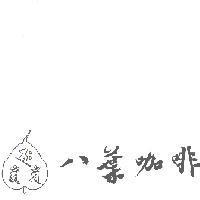 八葉咖啡